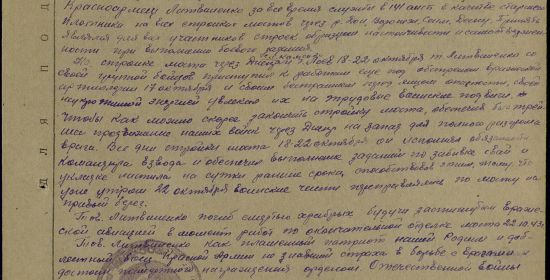 Красноармеец Литвиненко за все время службы в 141 в качестве старшего
плотника на всех стройках мостов через р. Дон, Десну, Принять
являлся для всех участников строек образцом настойчивости и самоотвержен
ности при выполнении боевого задания.
На стройке моста через Днепр 18-22 октября т. Литвиненко со
своей группой бойцов приступил к работам еще под обстрелом вражеской
артиллерии 17 октября и своим бесстрашием перед лицом опасности, своей
энергией увлекал их на трудовые воинские подвиги,
чтобы как можно скорее закончить стройку моста, обеспечив быстрей
шее продвижение наших войск через Днепр на запад для полного разгрома
врага. Все дни стройки моста 18-22 октября он исполнял обязанности
командира взвода и обеспечил выполнение заданий по забивке свай и
укладке настила на сутки раньше срока, способствовав этим тому, что
уже утром 22 октября воинские части переправлялись по мосту на
правый берег.
Тов. Литвиненко погиб смертью храбрых будучи застигнутым враже
ской авиацией в момент работ по окончательной отделке моста 22.10.43г.
Тов. Литвиненко как пламенный патриот нашей Родины и доб
лестный воин Красной Армии не знавший страха в борьбе с врагами
достоин посмертного награждения орденом „Отечественной войны
ДЛЯ ПОД